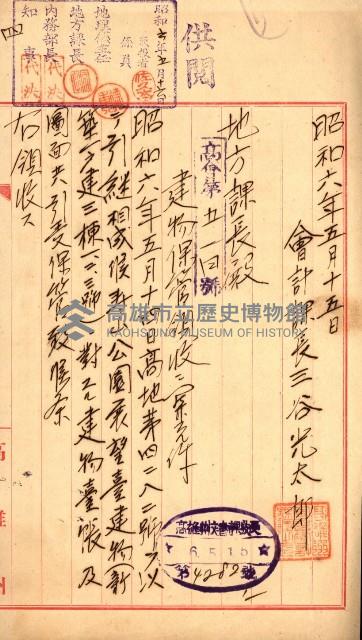 供閲
昭和六年五月十六日
係員
地理係主任
地方課長
内務部長
知事
四
昭和六年五月十五日
會計課長三谷光太郎
地方課長殿
高會第五一回號
建物保管領收ニ関スル件
昭和六年五月十四日高地第四二八二號ヲ以
テ引継相成候壽山公園展望臺建物(新
築一ノ建三棟一、二、三號)對スル建物臺帳及
圖面共引受保管致候条
右領收ス
高雄市立歷史博物館
KAOHSIUNG MUSEUM OF HISTORY
6.5.16
第4282號
高雄州